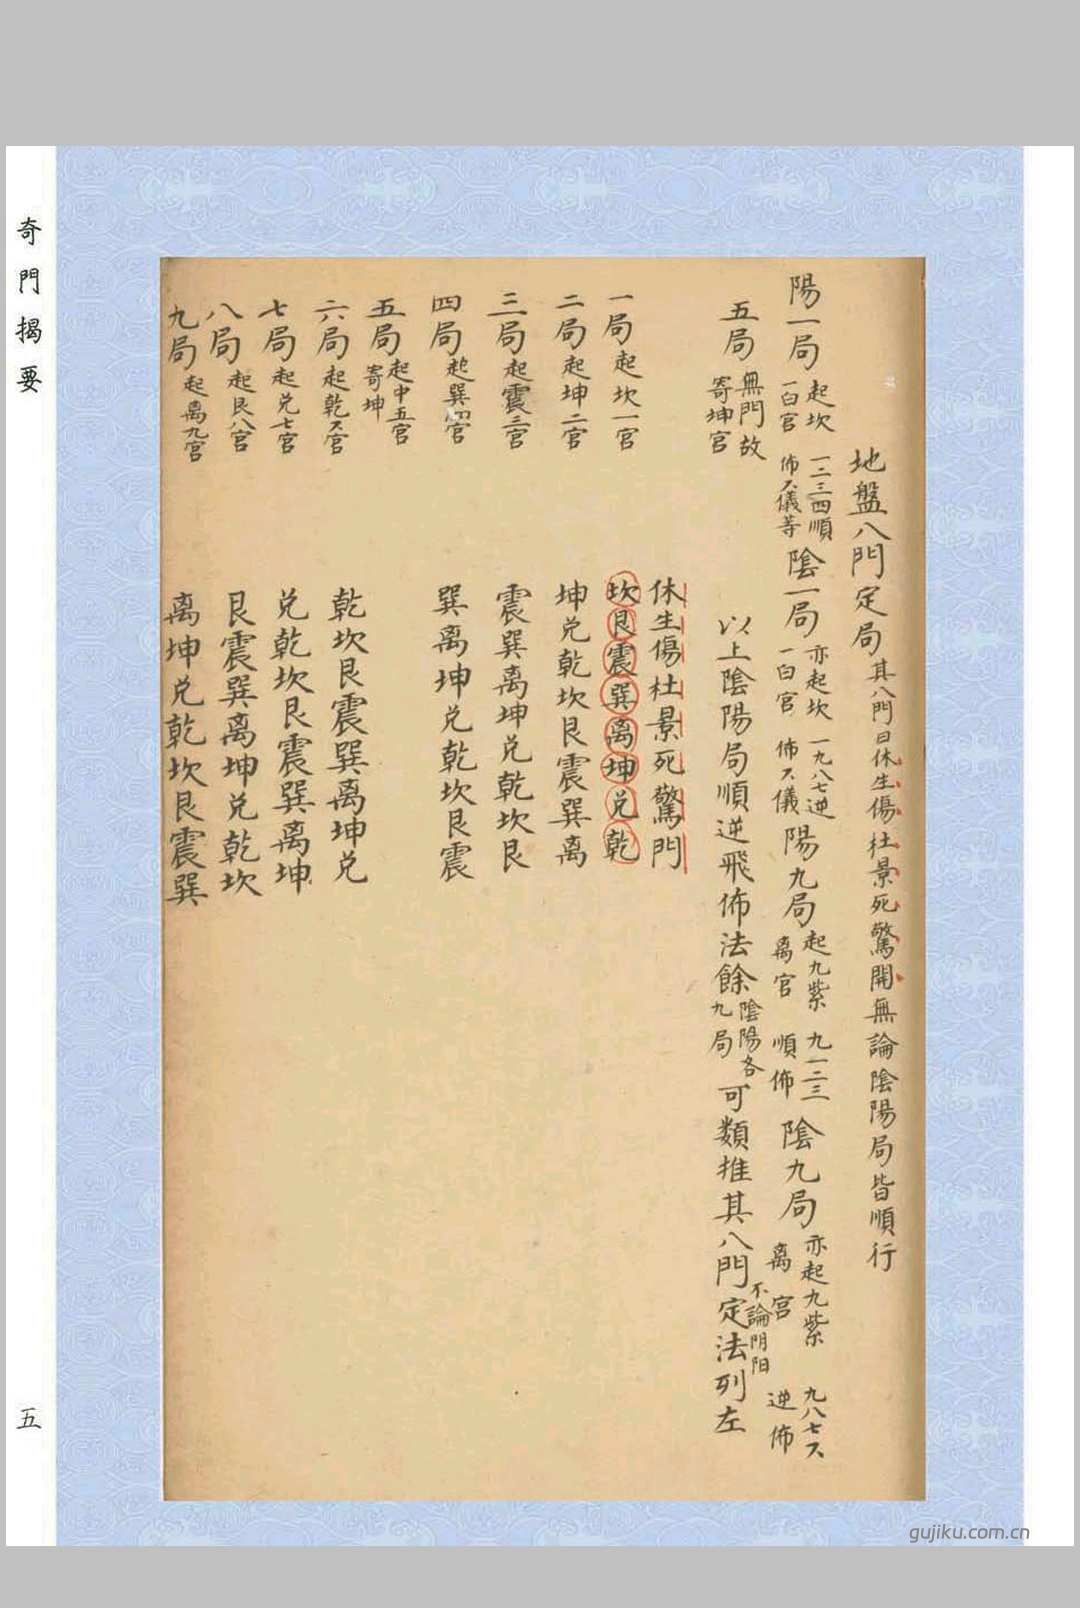 地盤八門定局其八門曰休生傷杜景死驚開無論陰陽局皆順行
陽一局起坎一白宮一二三四順佈六儀等陰一局亦起坎一白宮一九八七逆佈六儀陽九局起九紫离宮九一二三順佈陰九局亦起九紫离宮九八七六逆佈
五局無門故寄坤宮 以上陰陽局順逆飛佈法餘陰陽各九局可類推其八門不論阴阳定法列左
休生傷杜景死驚門
一局起坎一宮 坎艮震巽离坤兑乾
二局起坤二宮 坤兑乾坎艮震巽离
三局起震三宮 震巽离坤兑乾坎艮
四局起巽四宮 巽离坤兑乾坎艮震
五局起中五宮寄坤
六局起乾六宮 乾坎艮震巽离坤兑
七局起兑七宮 兑乾坎艮震巽离坤
八局起艮八宮 艮震巽离坤兑乾坎
九局起离九宮 离坤兑乾坎艮震巽
奇門揭要
五
gujiku.com.cn